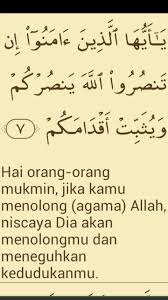 يَـٰٓأَيُّهَا ٱلَّذِينَ ءَامَنُوٓا۟ إِن
تَنصُرُوا۟ ٱللَّهَ يَنصُرْكُمْ
وَيُثَبِّتْ أَقْدَامَكُمْ ٧
Hai orang-orang
mukmin, jika kamu
menolong (agama) Allah,
niscaya Dia akan
menolongmu dan
meneguhkan
kedudukanmu.